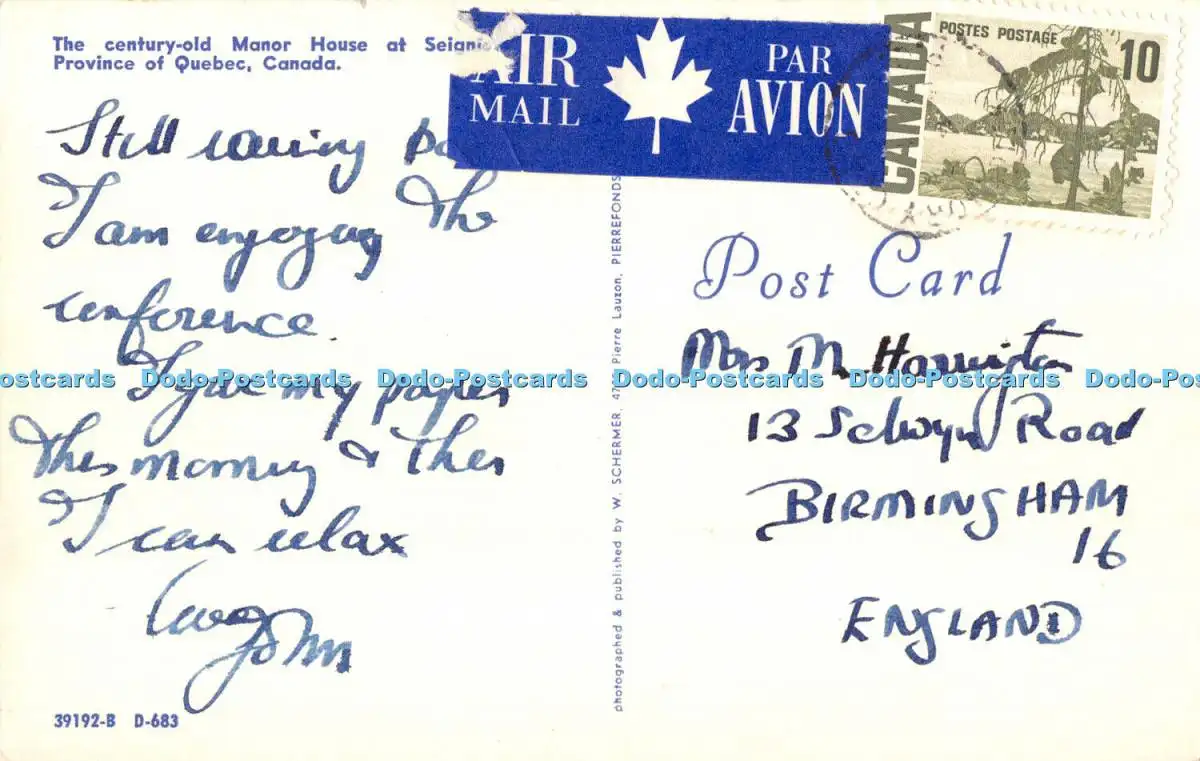 The century-old Manor House at
Province of Quebec, Canada.
Still raining
I am enjoying the
conference.
I give my paper
this morning & then
I can relax
love
John
39192-B D-683
AIR
MAIL
PAR
AVION
CANADA
POSTES POSTAGE
10
photographed & published by W. SCHERMER, Pierre Lauzon, PIERREFONDS
Post Card
Mrs M Harrington
13 Selwyn Road
BIRMINGHAM
16
ENGLAND
Dodo-Postcards Dodo-Postcards Dodo-Postcards Dodo-Postcards Dodo-Postcards